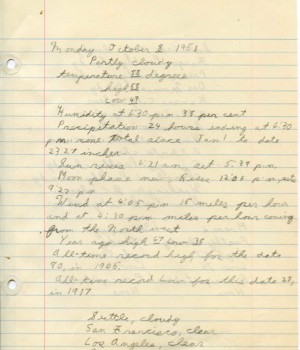 Monday October 8 1951
Partly cloudy
temperature degrees
high
Low 49
Humidity at 6:30 p.m. 38 per cent
Precipitation 24 hours ending at 6:30
p.m. none total since Jan 1 to date
27.27 inches
Sun rises 6:21 a.m. set 5:39 p.m.
Moon phase Rises 12:05 p.m. sets
9:22 p.m.
Wind at 4:05 p.m. 15 miles per hour
and at 4:30 p.m. miles per hour coming
from the North west
Year ago high Low
All-time record high for the date
90, in 1905.
All-time record low for this date 27,
in 1917
Seattle, cloudy
San Francisco, clear
Los Angeles, clear